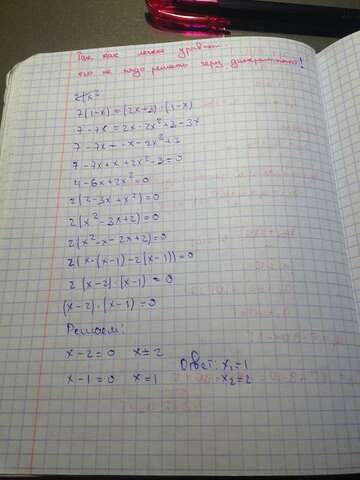 Так как легче уравн.
его не надо решать через дискриминант!
7(1-x)=(2x+3)·(1-x)
7-7x=2x-2x²+3-3x
7-7x=-x-2x²+3
7-7x+x+2x²-3=0
4-6x+2x²=0
2(2-3x+x²)=0
2(x²-3x+2)=0
2(x²-x-2x+2)=0
2(x·(x-1)-2(x-1))=0
2(x-2)·(x-1)=0
(x-2)·(x-1)=0
Решаем:
x-2=0 x=2
x-1=0 x=1
Ответ: x₁=1
x₂=2